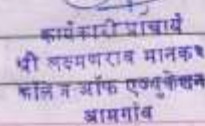 कार्यकारी प्राचार्य
श्री लक्ष्मणराव मानकर
कॉलेज ऑफ एज्युकेशन
आमगांव